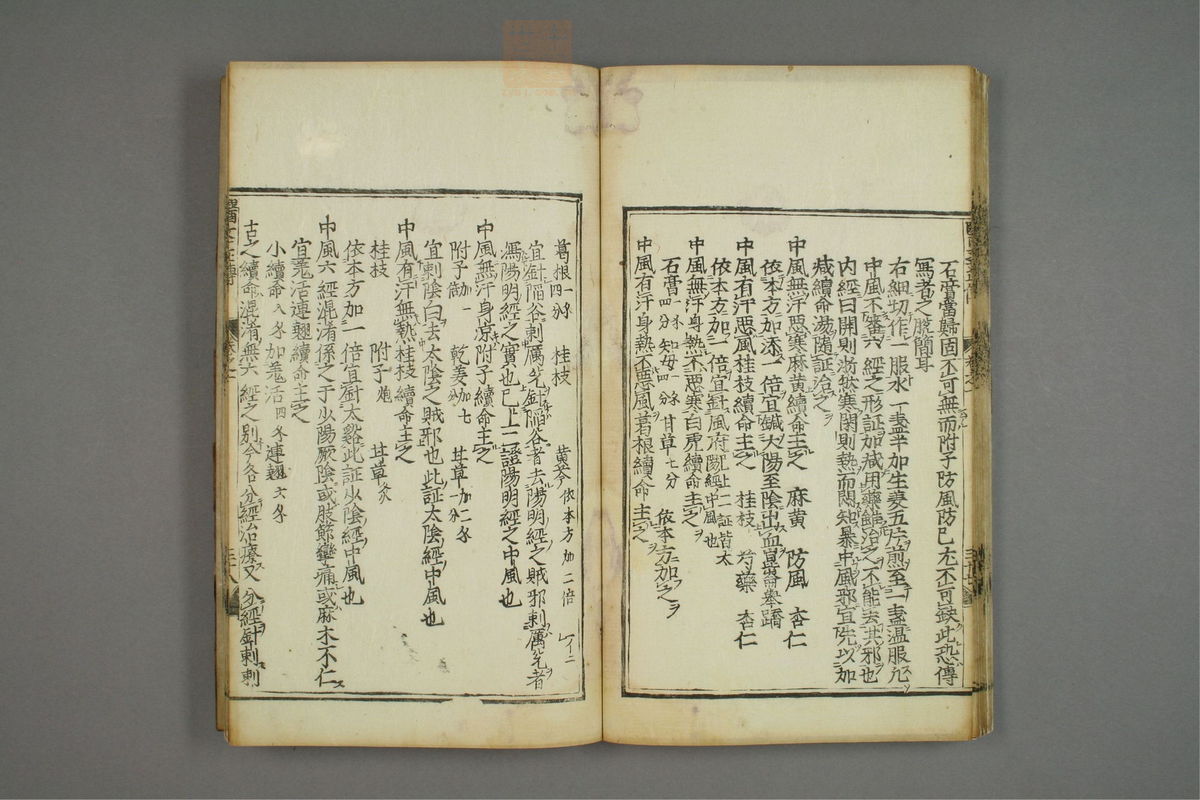 石膏當歸固不可無而附子防風防已尤不可缺此恐傳
寫者之脱簡耳
右細切作一服水一盞半加生姜五片煎至一盞温服凡
中風不審六經之形証加减用藥雖治之不能去其邪也
内經曰開則淅然寒閉則熱而悶知暴中風邪宜先以加
减續命湯随証治之
中風無汗惡寒麻黄續命主之 麻黄 防風 杏仁
依本方加添一倍宜鍼太陽至陰出血崑崙舉蹻
中風有汗惡風桂枝續命主之 桂枝 芍藥 杏仁
依本方加一倍宜針風府已上二証皆太陽經中風也
中風無汗身熱不惡寒白虎續命主之
石膏 知母一 甘草七分 依本方加之
中風有汗身熱不惡風葛根續命主之
葛根 桂枝 黄芩依本方加二倍
宜針陷谷刺厲兌針陷谷者去陽明經之賊邪刺厲兌者
瀉陽明經之實也已上二證陽明經之中風也
中風無汗身凉附子續命主之
附子加一 乾姜加七 甘草加二
宜刺隐白去太陰之賊邪也此証太陰經中風也
中風有汗無熱桂枝續命主之
桂枝 附子炮 甘草灸
依本方加一倍宜針太谿此証少陰經中風也
中風六經混淆係之于少陽厥陰或肢節攣痛或麻木不仁
宜羗活連翹續命主之
小續命八 加羗活四 連翹六
古之續命混淆無六經之别今各分經治療又分經針刺刺